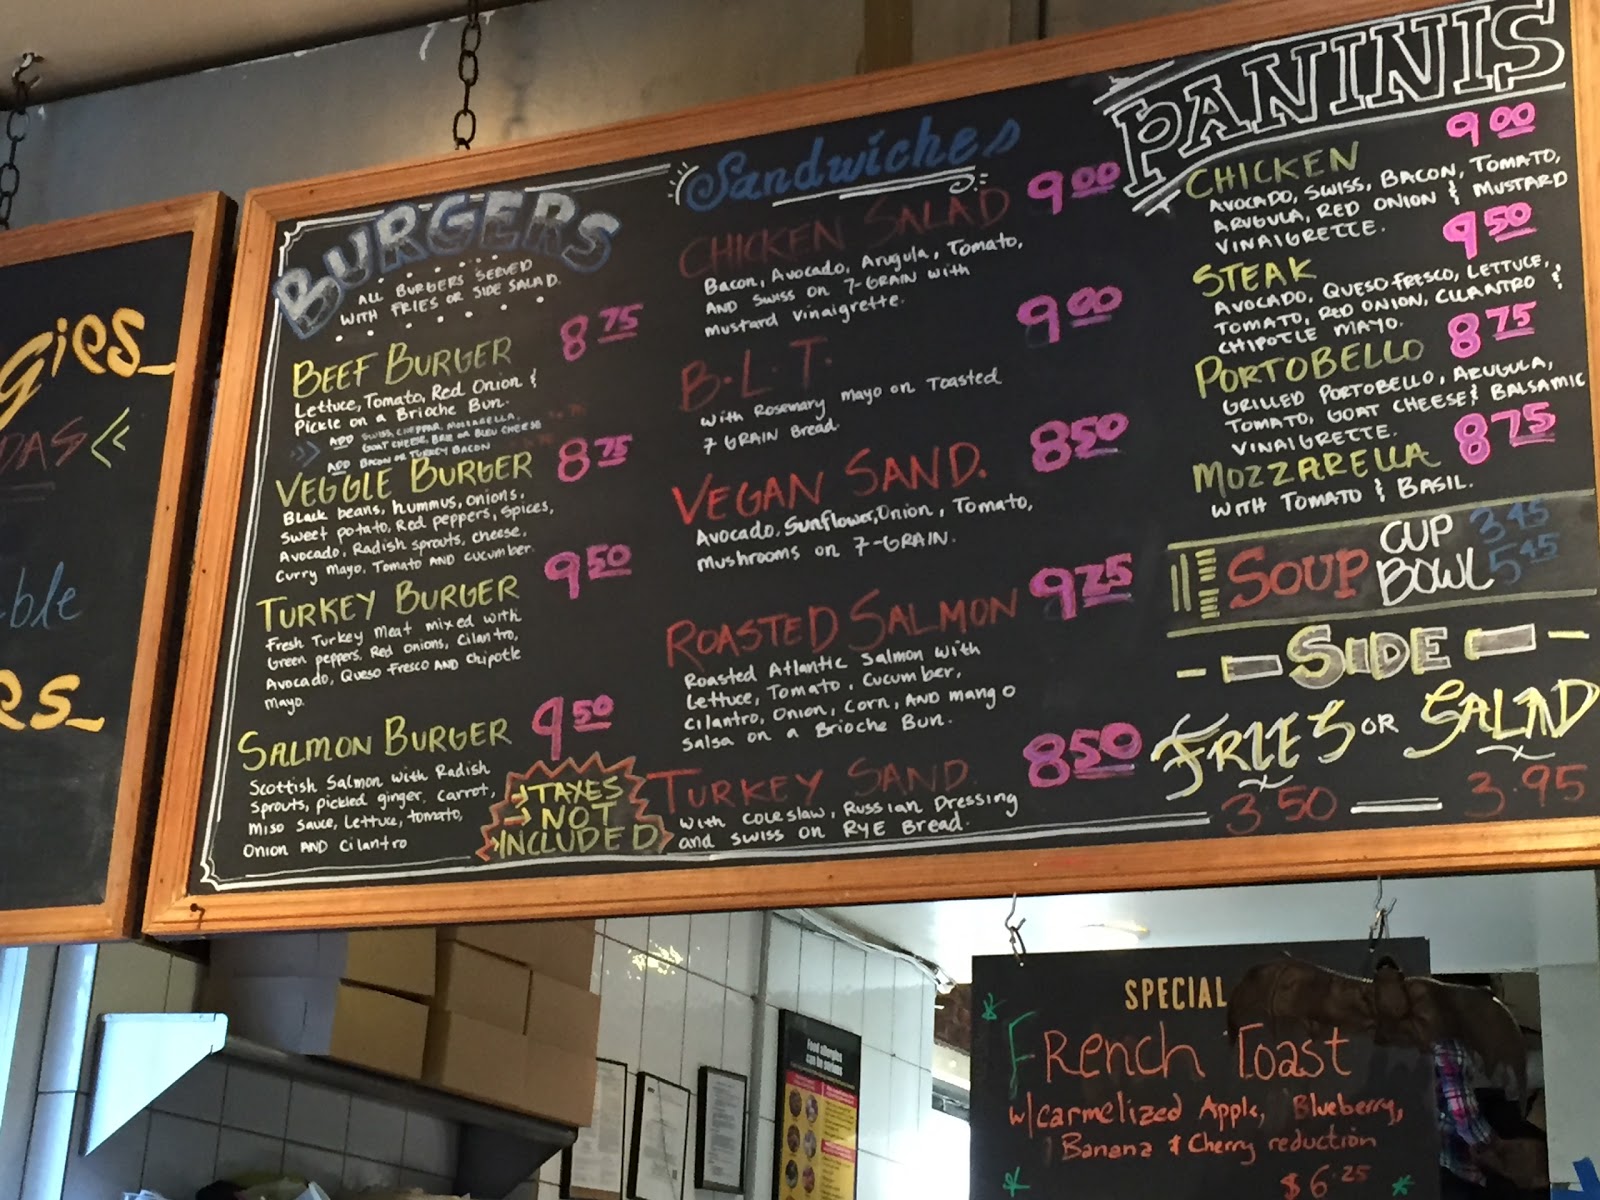 gies
DAS
ble
es
BURGERS
ALL BURGERS SERVED
WITH FRIES OR SIDE SALAD.
BEEF BURGER 8 75
Lettuce, Tomato, Red Onion &
Pickle on a Brioche Bun.
ADD SWISS, CHEDDAR, MOZZARELLA,
GOAT CHEESE, BRIE OR BLEU CHEESE
ADD BACON OR TURKEY BACON
VEGGIE BURGER 8 75
Black beans, hummus, onions,
Sweet potato, Red peppers, Spices,
Avocado, Radish sprouts, cheese,
Curry Mayo, Tomato AND cucumber.
TURKEY BURGER 9 50
Fresh Turkey Meat mixed with
Green peppers, Red onions, Cilantro,
Avocado, Queso Fresco AND Chipotle
Mayo.
SALMON BURGER 9 50
Scottish Salmon with Radish
Sprouts, pickled ginger, carrot,
Miso Sauce, Lettuce, tomato,
Onion AND Cilantro
TAXES
NOT
INCLUDED
Sandwiches
CHICKEN SALAD 9 00
Bacon, Avocado, Arugula, Tomato,
AND SWISS on 7-GRAIN with
Mustard Vinaigrette.
B.L.T. 9 00
With Rosemary Mayo on Toasted
7 GRAIN Bread.
VEGAN SAND. 8 50
Avocado, Sunflower, Onion, Tomato,
Mushrooms on 7-GRAIN.
ROASTED SALMON 9 75
Roasted Atlantic Salmon with
Lettuce, Tomato, Cucumber,
Cilantro, Onion, Corn, AND mango
Salsa on a Brioche Bun.
TURKEY SAND. 8 50
With Coleslaw, Russian Dressing
and Swiss on RYE Bread.
PANINIS
CHICKEN 9 00
AVOCADO, SWISS, BACON, TOMATO,
ARUGULA, RED ONION & MUSTARD
VINAIGRETTE.
STEAK 9 50
AVOCADO, QUESO FRESCO, LETTUCE,
TOMATO, RED ONION, CILANTRO &
CHIPOTLE MAYO.
PORTOBELLO 8 75
GRILLED PORTOBELLO, ARUGULA,
TOMATO, GOAT CHEESE & BALSAMIC
VINAIGRETTE.
MOZZARELLA 8 75
WITH TOMATO & BASIL.
SOUP CUP 3 45
BOWL 5 45
SIDE
FRIES OR SALAD
3.50 3.95
SPECIAL
French Toast
w/carmelized Apple, Blueberry,
Banana & Cherry reduction
$6.25
Food allergies
can be serious